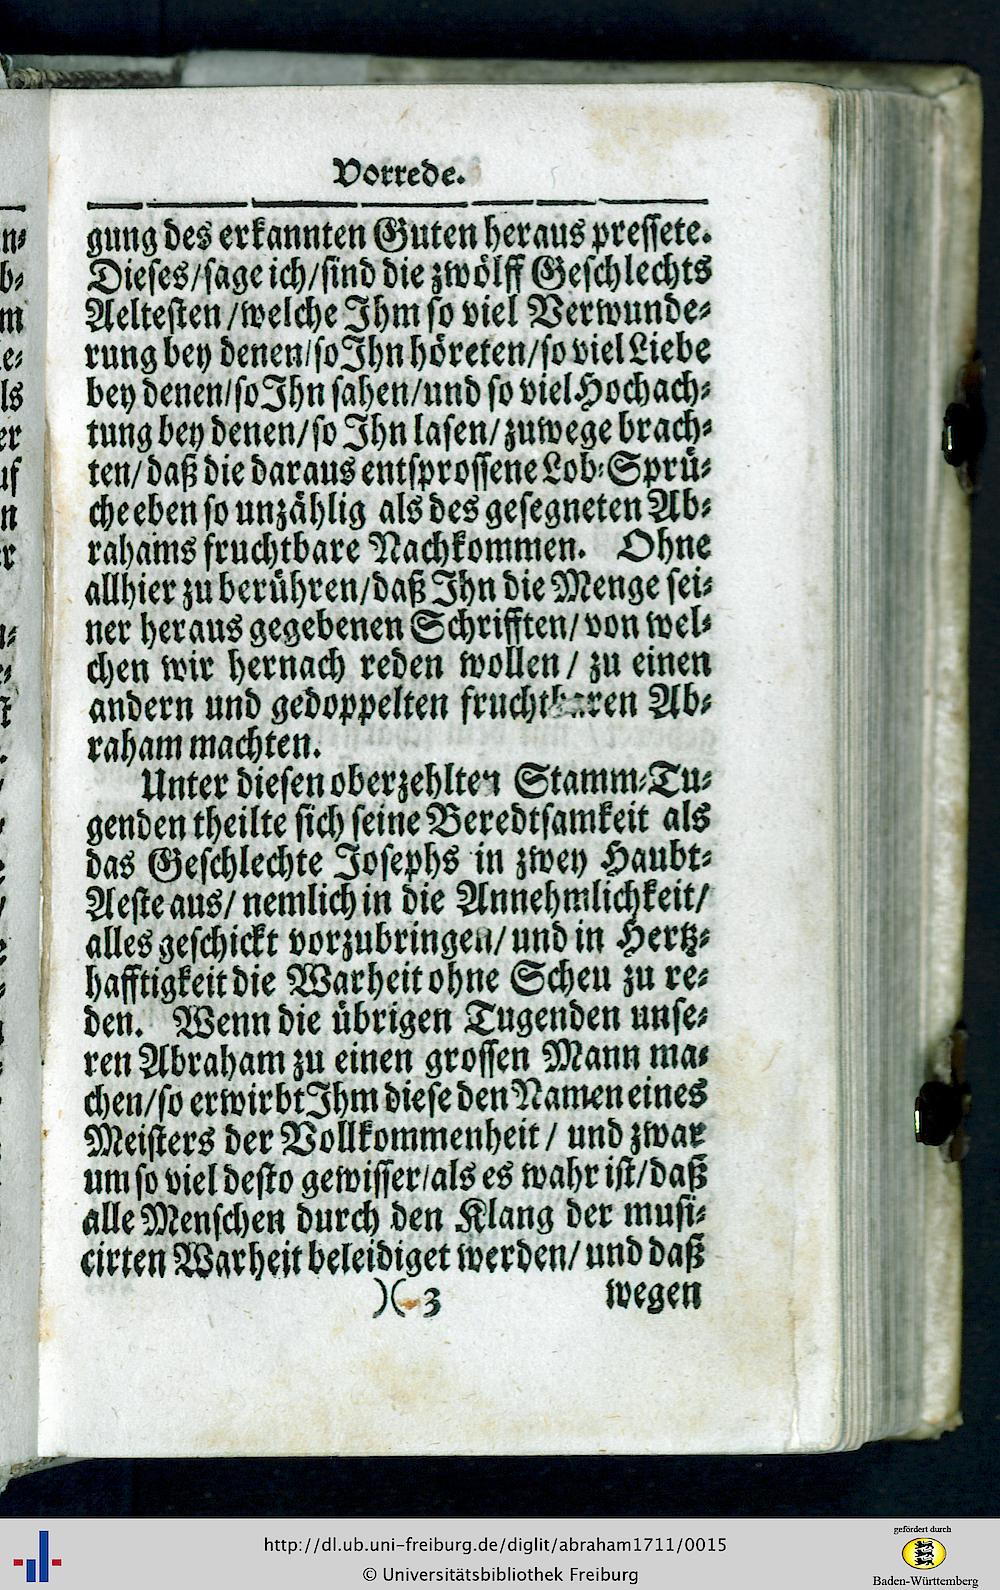 Vorrede.
gung des erkannten Guten heraus pressete.
Dieses/sage ich/sind die zwölff Geschlechts
Aeltesten/welche Ihm so viel Verwunde-
rung bey denen/so Ihn höreten/so viel Liebe
bey denen/so Ihn sahen/und so viel Hochach-
tung bey denen/so Ihn lasen/zuwege brach-
ten/daß die daraus entsprossene Lob-Sprü-
che eben so unzählig als des gesegneten Ab-
rahams fruchtbare Nachkommen. Ohne
allhier zu berühren/daß Ihn die Menge sei-
ner heraus gegebenen Schrifften/von wel-
chen wir hernach reden wollen/zu einen
andern und gedoppelten fruchtbaren Ab-
raham machten.
Unter diesen oberzehlten Stamm-Tu-
genden theilte sich seine Beredtsamkeit als
das Geschlechte Josephs in zwey Haubt-
Aeste aus/nemlich in die Annehmlichkeit/
alles geschickt vorzubringen/und in Hertz-
hafftigkeit die Warheit ohne Scheu zu re-
den. Wenn die übrigen Tugenden unse-
ren Abraham zu einen grossen Mann ma-
chen/so erwirbt Ihm diese den Namen eines
Meisters der Vollkommenheit/und zwar
um so viel desto gewisser/als es wahr ist/daß
alle Menschen durch den Klang der musi-
cirten Warheit beleidiget werden/und daß
)( 3 wegen
n-
b-
m
e-
ls
er
uf
n
er
http://dl.ub.uni-freiburg.de/diglit/abraham1711/0015
© Universitätsbibliothek Freiburg
gefördert durch
Baden-Württemberg